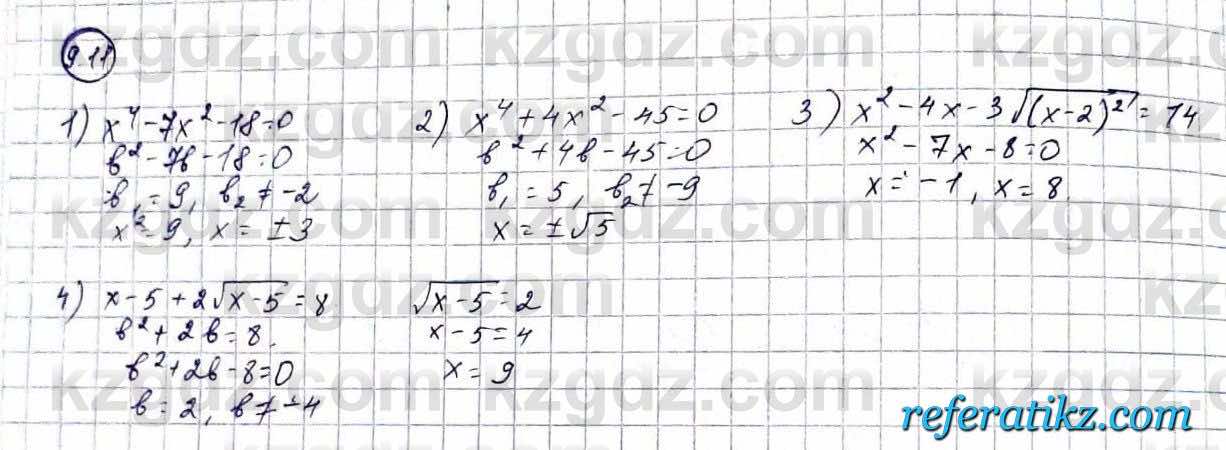 9.11
1) x⁴-7x²-18=0
b²-7b-18=0
b₁=9, b₂≠-2
x²=9, x=±3
2) x⁴+4x²-45=0
b²+4b-45=0
b₁=5, b₂≠-9
x=±√5
3) x²-4x-3√(x-2)²=14
x²-7x-8=0
x=-1, x=8.
4) x-5+2√x-5=8
b²+2b=8.
b²+2b-8=0
b=2, b≠-4
√x-5=2
x-5=4
x=9
kzgdz.com
referatikz.com